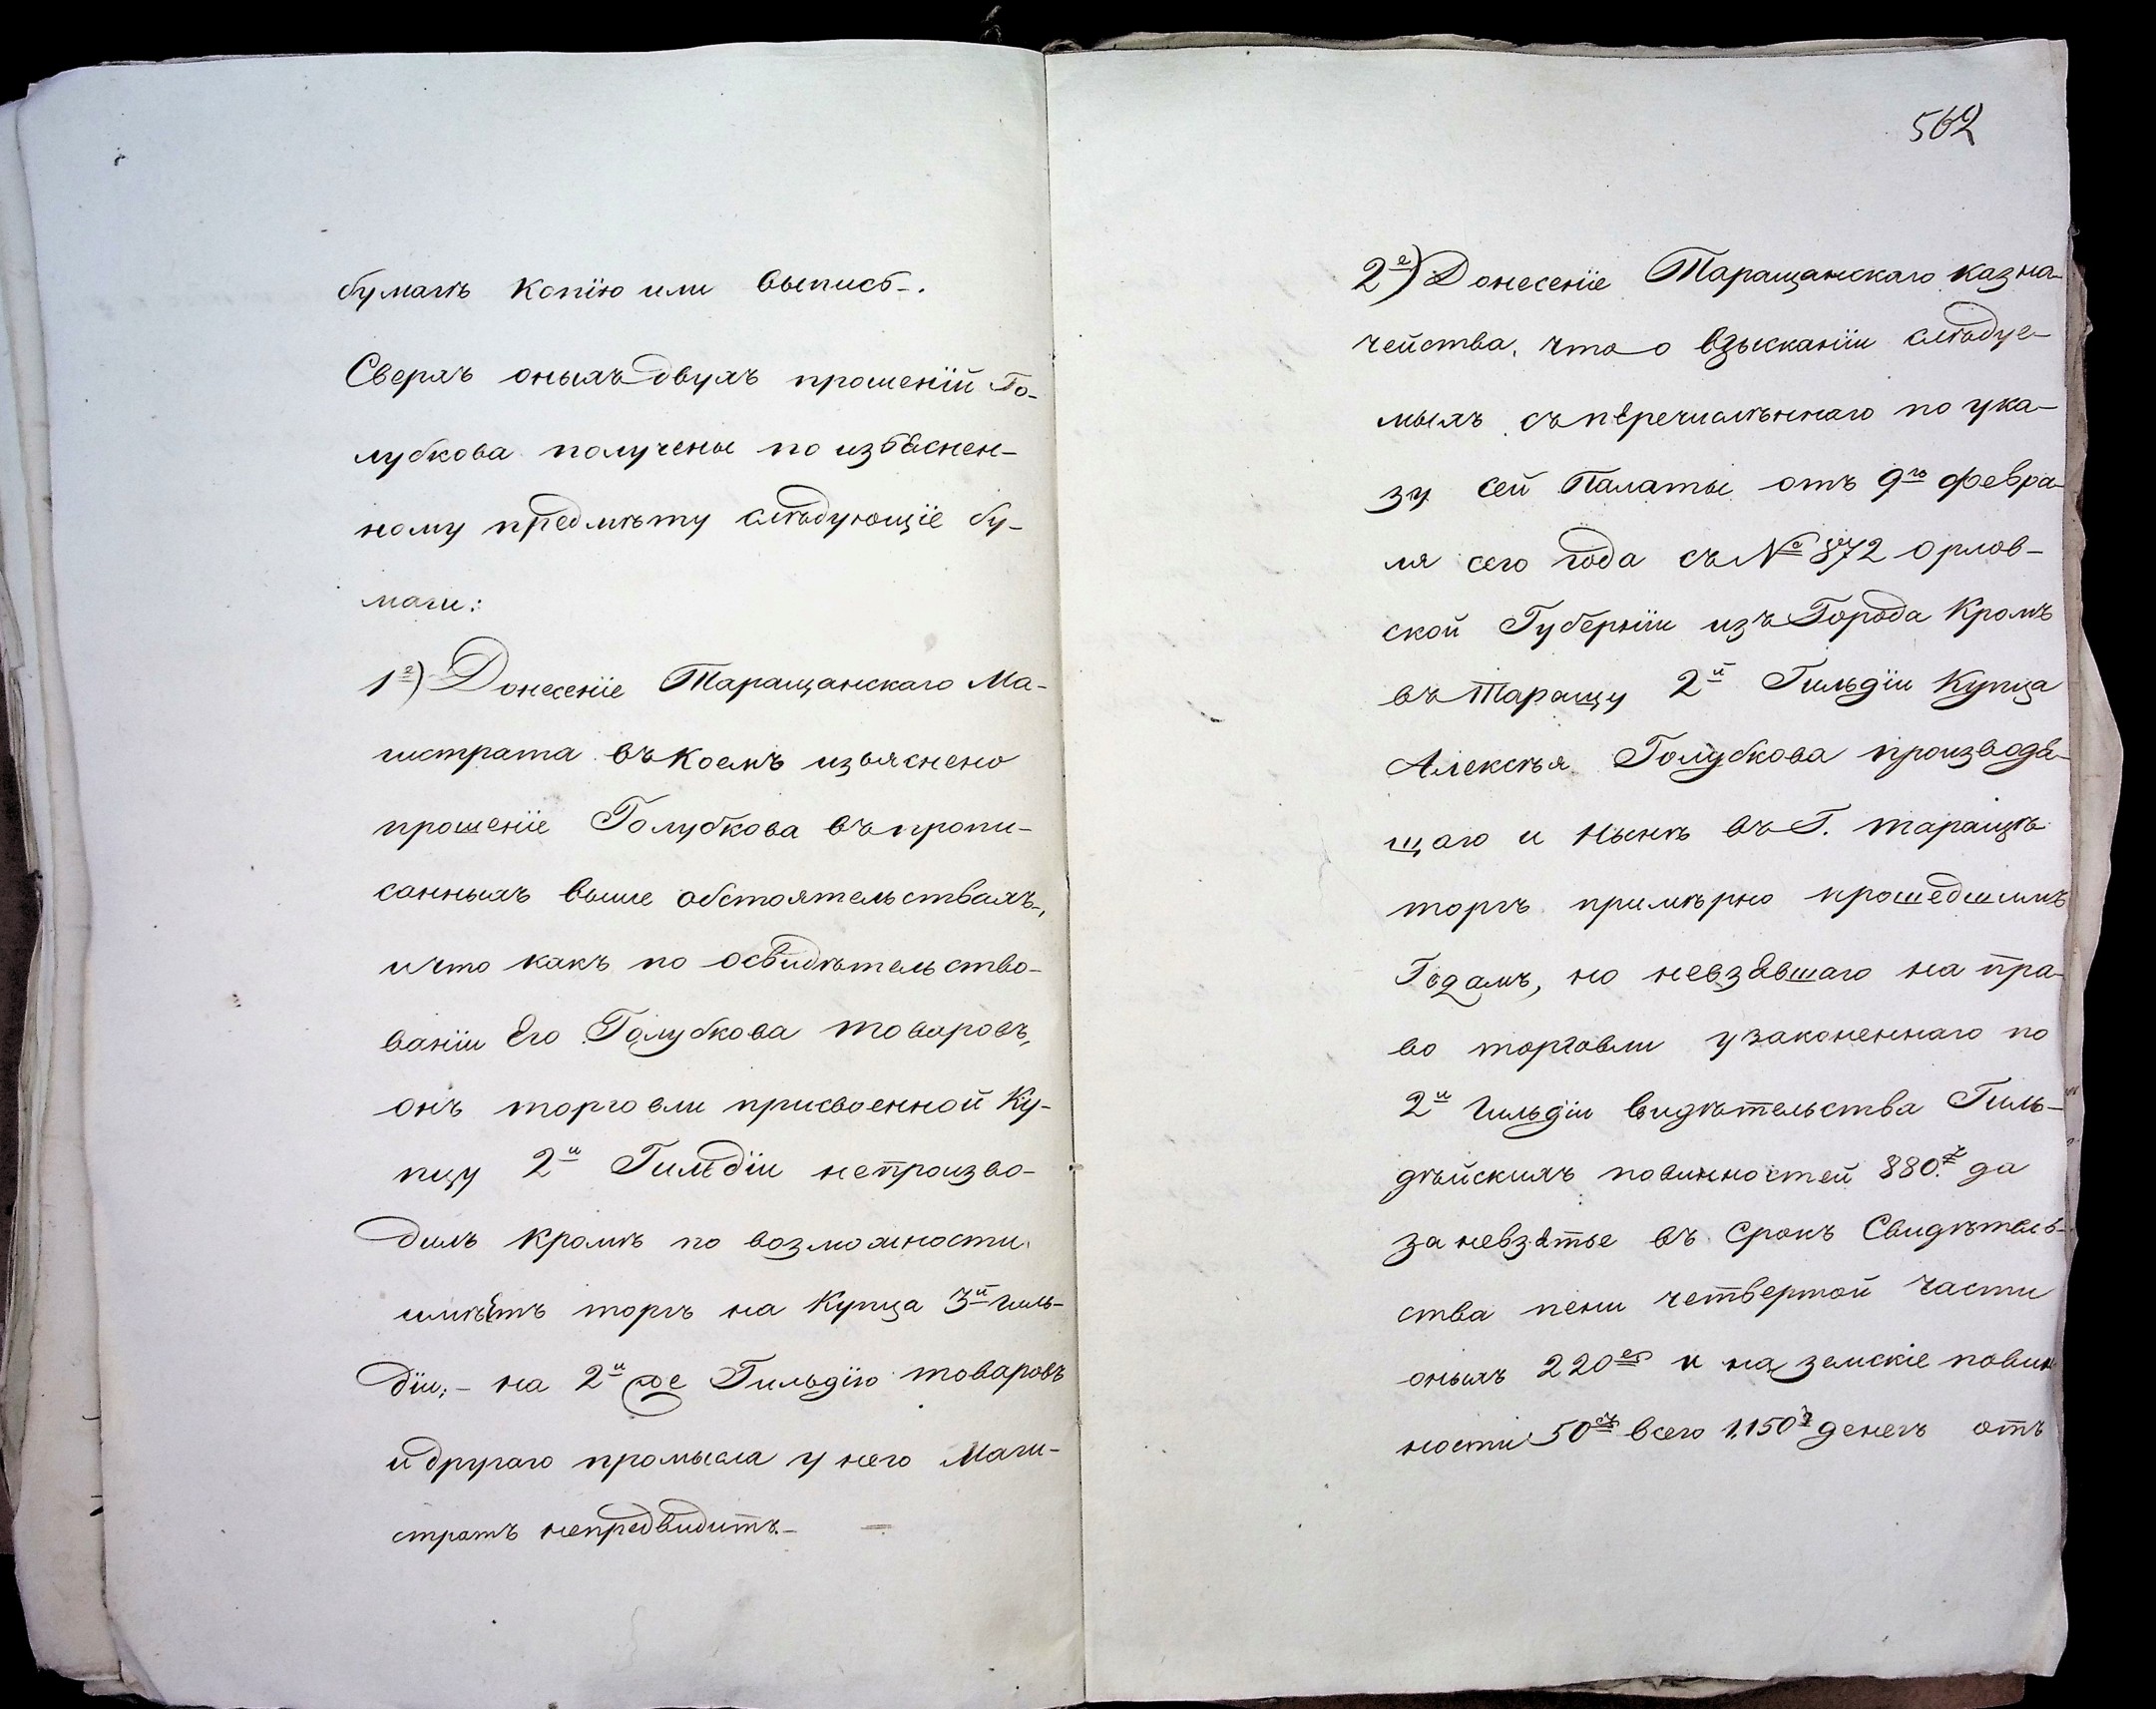 бумагъ копію или выпись-.
Сверхъ оныхъ двухъ прошеній Го-
лубкова получены по избяснен-
ному предмѣту слѣдующіе бу-
маги:
1е) Донесеніе Таращанскаго Ма-
гистрата въ коемъ изъяснено
прошеніе Голубкова въ пропи-
санныхъ выше обстоятельствахъ,
и что какъ по освидѣтельство-
ваніи Его Голубкова товаровъ,
онъ торговли присвоенной Ку-
пцу 2й Гильдіи непроизво-
дилъ кромѣ по возможности
имѣетъ торгъ на Купца 3й гиль-
діи; - на 2ю же Гильдію товаровъ
и другаго промысла у него Маги-
стратъ непредвидитъ.-
562
2е) Донесеніе Таращанскаго казна-
чейства, что о взысканіи слѣдуе-
мыхъ съ перечисленнаго по ука-
зу сей Палаты отъ 9го февра-
ля сего года съ № 872 Орлов-
ской Губерніи изъ Города Кромъ
въ Таращу 2й Гильдіи Купца
Алексѣя Голубкова производя-
щаго и нынѣ въ Г. Таращѣ
торгъ примѣрно прошедшимъ
Годамъ, но невзявшаго на пра-
во торговли узаконеннаго по
2й гильдіи видѣтельства Гиль-
дѣйскихъ повинностей 880. да
за невзятье въ срокъ Свидѣтель-
ства пени четвертой части
оныхъ 220 и на земскіе повин
ности 50 всего 1,150 денегъ отъ